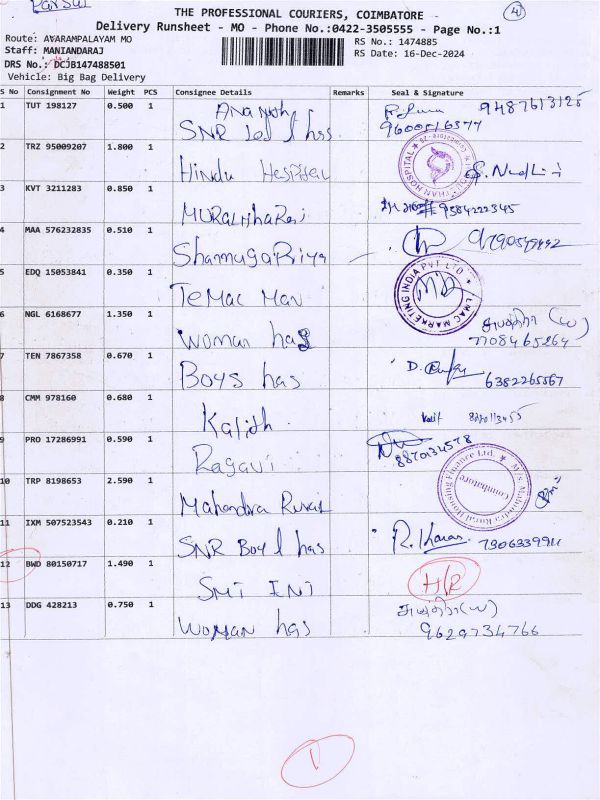 Parsul
4
THE PROFESSIONAL COURIERS, COIMBATORE
Delivery Runsheet - MO - Phone No.:0422-3505555 - Page No.:1
Route: AVARAMPALAYAM MO
RS No.: 1474885
Staff: MANIANDARAJ
RS Date: 16-Dec-2024
DRS No.: DCJB147488501
Vehicle: Big Bag Delivery
S No Consignment No Weight PCS Consignee Details Remarks Seal & Signature
1 TUT 198127 0.500 1 SNR 9487613125
2 TRZ 95009207 1.800 1 Hindu Hospital
3 KVT 3211283 0.850 1 9584222345
4 MAA 576232835 0.510 1 ShanmugaPriya
5 EDQ 15053841 0.350 1 TeMac Man
MARKETING INDIA PVT LTD
6 NGL 6168677 1.350 1 Woman has 7708465264
7 TEN 7867358 0.670 1 Boys has D. 6382265567
8 CMM 978160 0.680 1 Kalith Kalit
9 PRO 17286991 0.590 1 Ragavi 8870134578
10 TRP 8198653 2.590 1 Mahendra Rural
M/s. Mahindra Rural Housing Finance Ltd. Coimbatore
11 IXM 507523543 0.210 1 SNR Boy has R. 7306339911
12 BWD 80150717 1.490 1 SMT INI H/R
13 DDG 428213 0.750 1 Woman has 9629734766
1